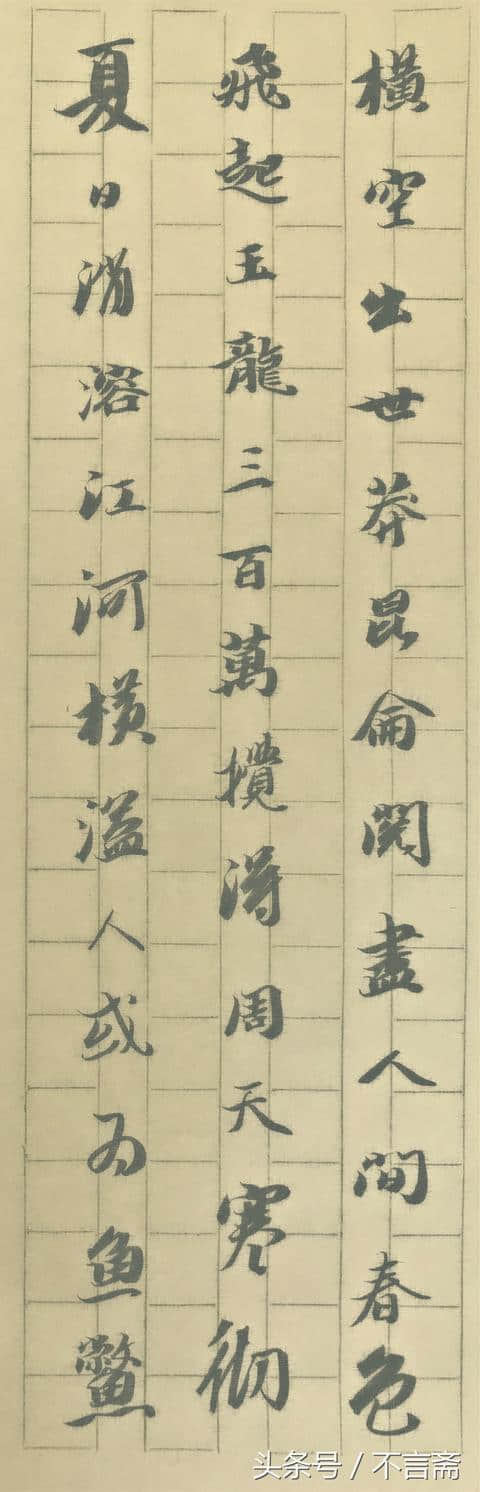 橫空出世莽昆侖閱盡人間春色
飛起玉龍三百萬攪得周天寒彻
夏日消溶江河橫溢人或为魚鱉
头条号 / 不言斋